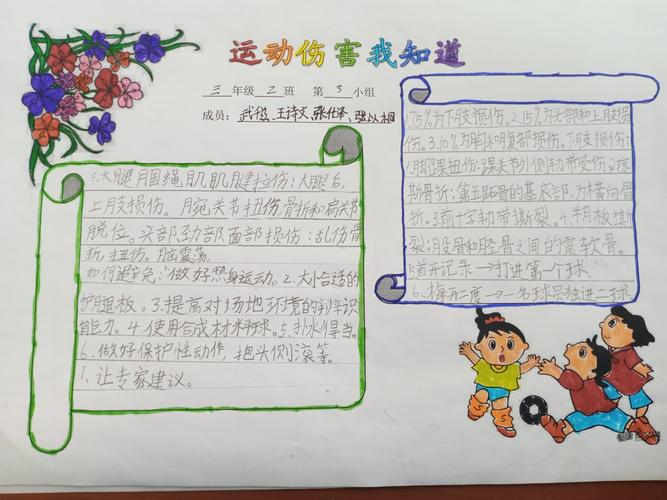 运动伤害我知道
三年级2班 第3小组
成员:武 、王诗文、张仕泽、张以桐
1.75%为下肢损伤。2.15%为头部和上肢损
伤。3.10%为胸和腹部损伤。下肢损伤:
1.脚踝扭伤:踝关节外侧韧带受伤。2.琼
斯骨折:第五跖骨的基底部,为横向骨
折。3.前十字韧带撕裂。4.半月板撕
裂:股骨和胫骨之间的 软骨。
5首开记录→打进第一个球
6、梅开二度→一名球员独进二球
5.大腿 绳肌肌腱拉伤:大腿后,
上肢损伤。 关节扭伤骨折和肩关节
脱位。头部劲部面部损伤: 伤骨
折,扭伤,脑震荡。
如何避免:做好热身运动。2.大小合适的
护腿板。3.提高对场地环境的 识
能力。4.使用合成材料球。5.补水得当。
6.做好保护性动作,抱头侧滚等。
7、让专家建议。